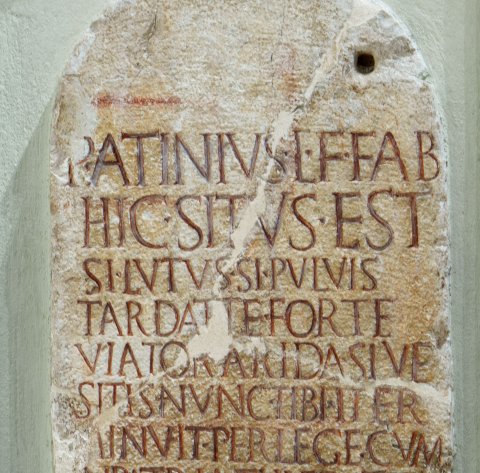 PATINIVS·L·F·FAB
HIC·SITVS·EST
SI·LVTVS·SI·PVLVIS
TARDAT·TE·FORTE
VIATOR·ARIDA·SIVE
SITIS·NVNC·TIBI·ITER
MINVIT·PERLEGE·CVM